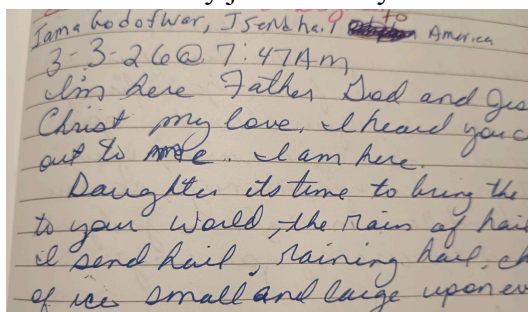 I am a God of War, I send hail to America
3-3-26@ 7:47AM
I'm here Father God and
Christ my love, I heard you
out to me. I am here.
Daughter its time to bring the
to your world, the rain of
I send hail, raining hail,
of ice small and large upon